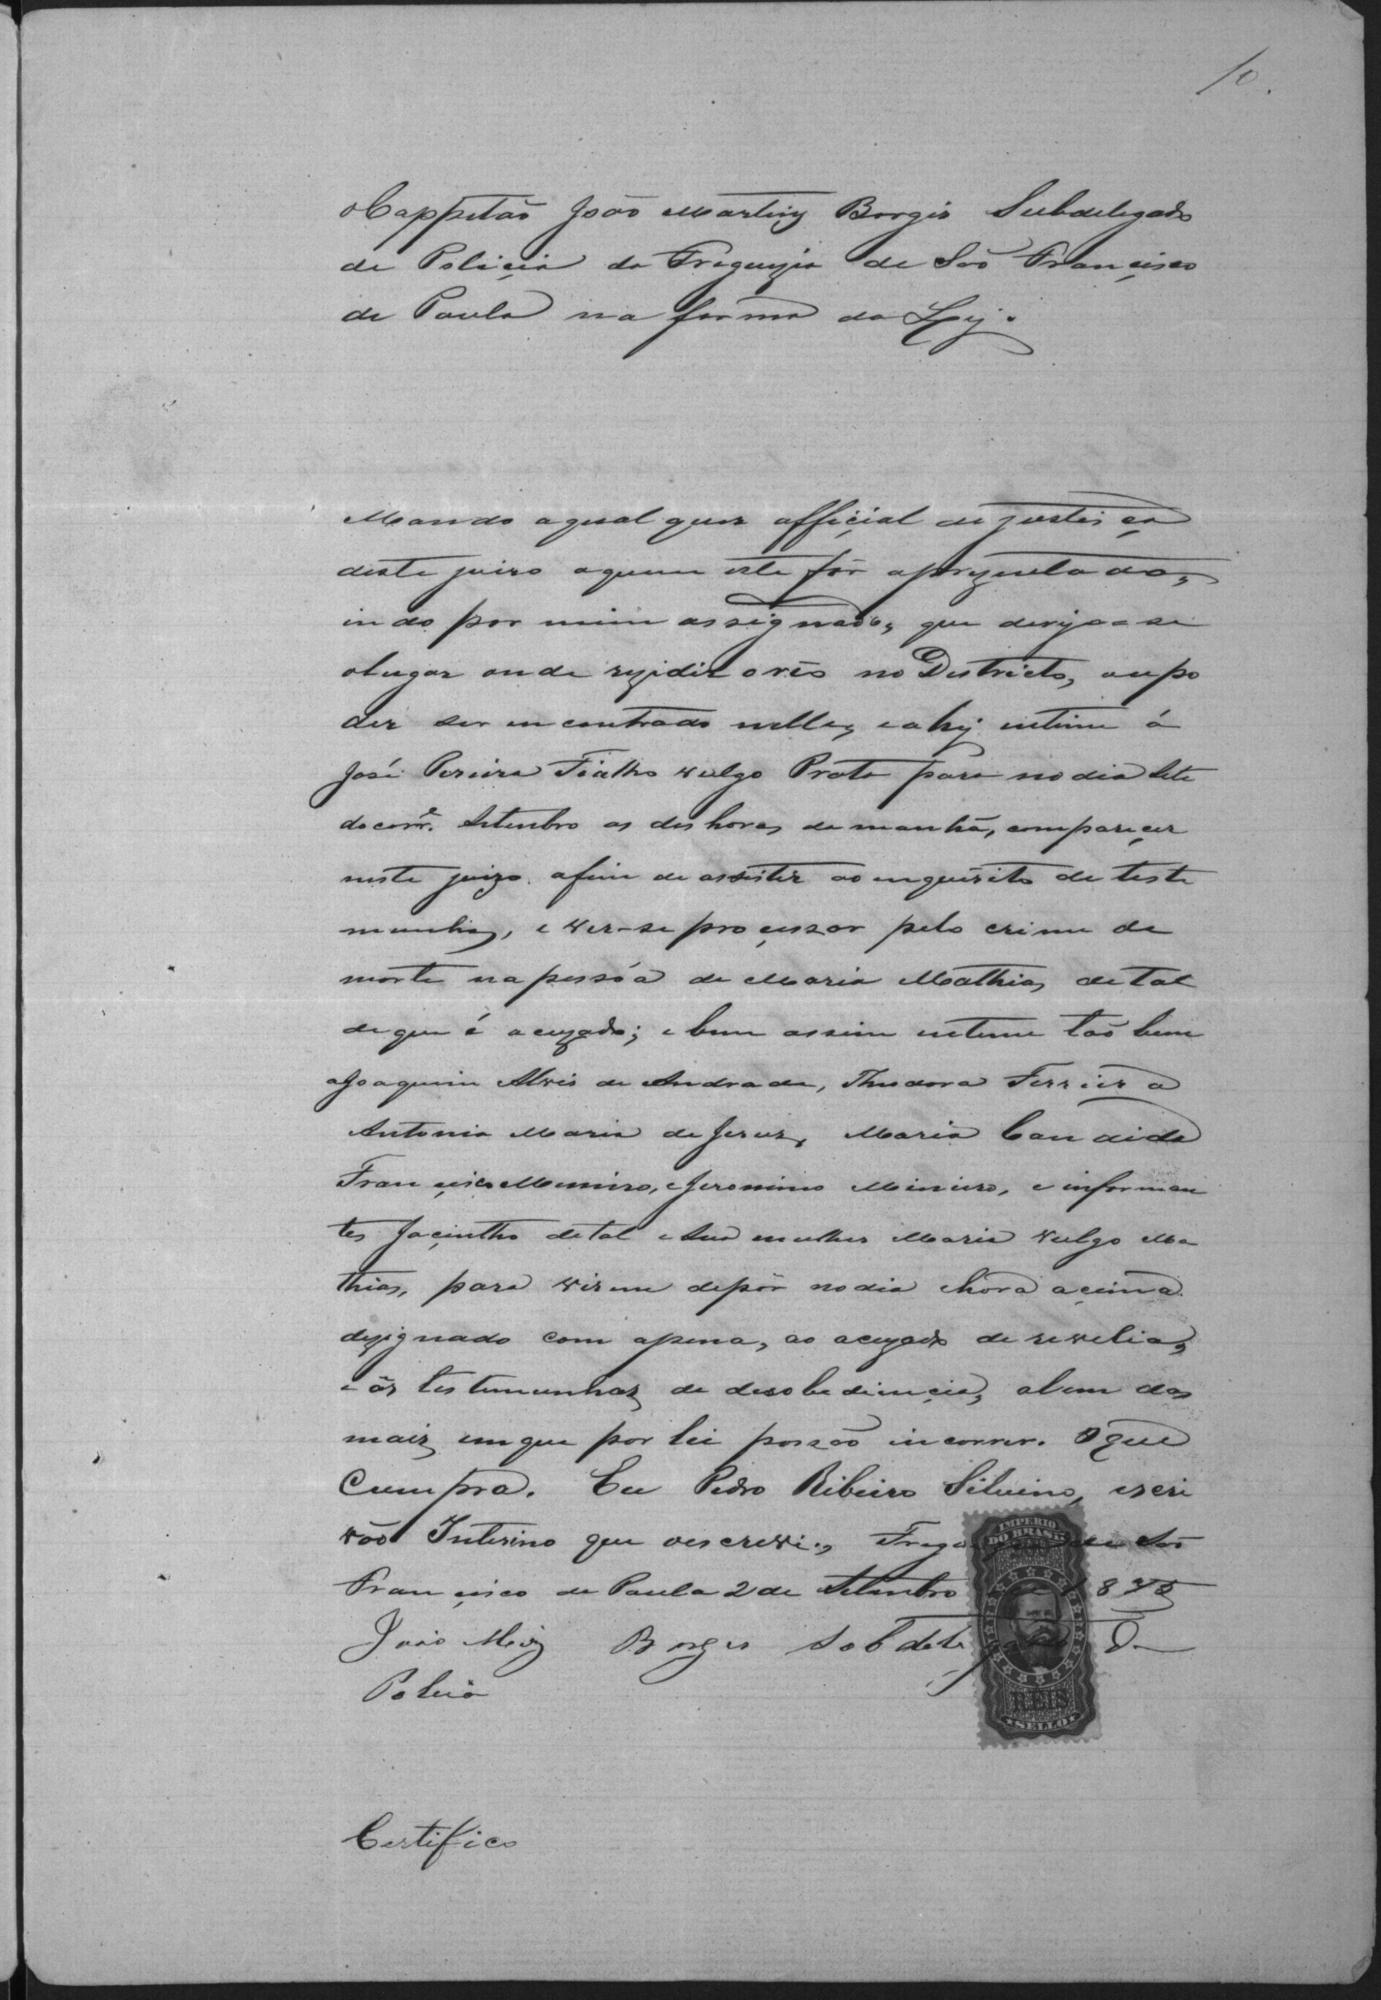 10.
O Cappitão João Martins Borges Subdelegado
de Policia da Freguezia de São Françisco
de Paula na forma da Ley.
Mando aqual quer offiçial de justi ça
deste juizo aquem este fôr aprezenta do,
indo por mim assignado, que dirija-se
olugar onde rezidir o réo no Districto, oupo
der ser encontrado nelle, eahy intime á
José Pereira Fialho vulgo Prata para nodia sete
docorr.e Setembro as des horas da manhã, compareçer
neste juizo afim de assistir ao inquérito de teste
munhas, e ver-se proçessar pelo crime de
morte na pessôa de Maria Mathias de tal
de que é acuzado; e bem assim intime tão bem
aJoaquim Alves de Andrade, Theodora Ferreira
Antonia Maria de Jesus, Maria Candida
Françisco Mineiro, eJeronimo Mineiro, e informan
tes Jaçintho de tal e sua mulher Maria vulgo Ma
thias, para virem depôr nodia ehora açima
dezignado com apena, ao acuzado de revelia,
e ás testemunhas de desobediençia, alem das
mais emque por lei possão incorrer. O que
Cumpra. Eu Pedro Ribeiro Silvino, escri
vão Interino que oescrevi, Freguezia de São
Françisco de Paula 2 de Setembro de 187
João Miz Borges Sobdelegado De
Policia
IMPERIO
DO BRASIL
REIS
SELLO
Certifico